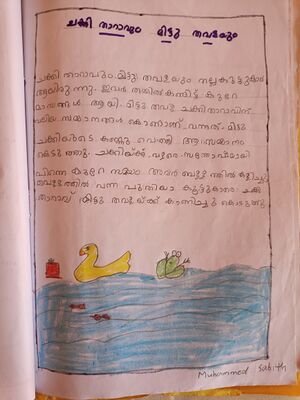 ചക്കി താറാവും മിട്ടു തവളയും
ചക്കി താറാവും മിട്ടു തവളയും നല്ല കൂട്ടുകാർ
ആയിരുന്നു. ഇവർ തമ്മിൽ കണ്ടിട്ട് കുറേ
മാസങ്ങൾ ആയി. മിട്ടു തവള ചക്കിതാറാവിന്
സമ്മാനങ്ങൾ കൊണ്ടാണ് വന്നത്. മിട്ടു
ചക്കിയുടെ കണ്ണു പൊത്തി ആ സമ്മാനം
കൊടുത്തു. ചക്കിയ്ക്ക് വളരെ സന്തോഷമായി
പിന്നെ കുറേ സമയം അവർ കളിച്ചു
വന്ന പുതിയ കൂട്ടുകാരെ ചക്കി
താറാവ് മിട്ടു തവളയ്ക്ക് കാണിച്ചു കൊടുത്തു
Muhammed Sabith